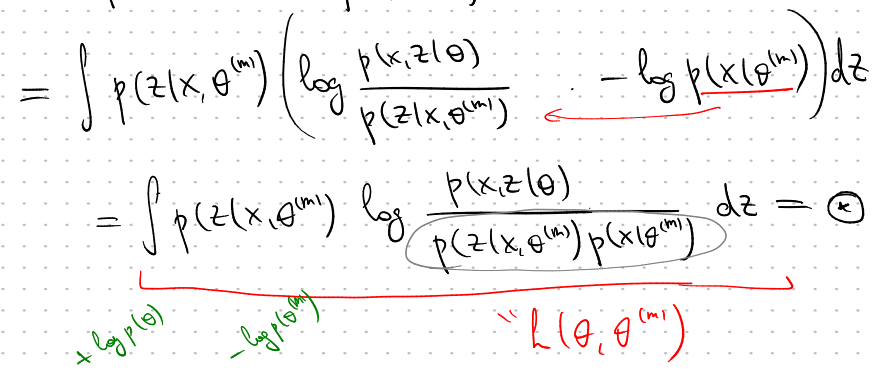 = ∫ p(z|x, θ^(m)) ( log p(x,z|θ) / p(z|x, θ^(m)) - log p(x|θ^(m)) ) dz
= ∫ p(z|x, θ^(m)) log p(x,z|θ) / p(z|x, θ^(m)) p(x|θ^(m)) dz = ⊛
+ log p(θ) - log p(θ^(m)) " h(θ, θ^(m))